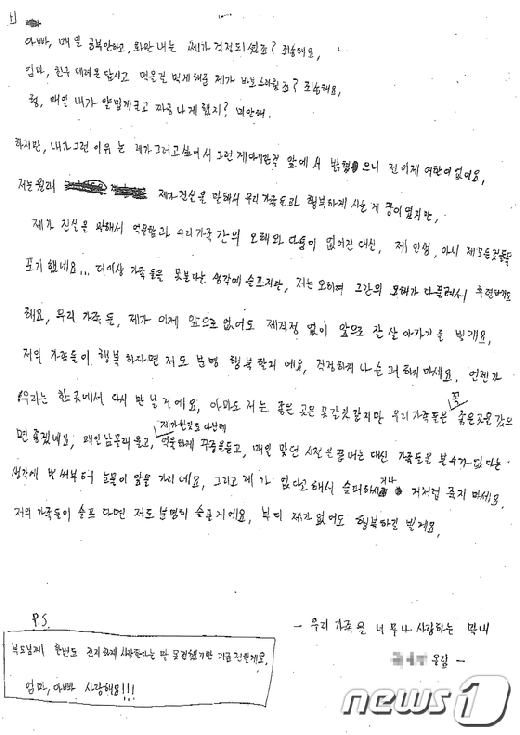 아빠, 매일 공부안하고, 화만내는 제가 걱정되셨죠? 죄송해요,
엄마, 친구 데려온답시고 먹을걸 먹게해준 제가 바보스러웠죠? 죄송해요,
형, 매일 내가 얄밉게굴고 짜증나게 했지? 미안해.
하지만, 내가 그런 이유는 제가 그러고 싶어서 그런게 아닌란걸 앞에서 밝혔으니 전 이제 여한이없어요,
저는 원래 제가진실을 말해서 우리가족들과 행복하게 사는게 꿈이였지만,
제가 진실을 말해서 억울함과 우리가족간의 오해와 다툼이 없어진대신, 제 인생, 아니 제 모든것들을
포기했네요... 더이상 가족들을 못본다는 생각에 슬프지만, 저는 오히려 그간의 오해가 다 풀려서 후련하기도
해요, 우리 가족들, 제가 이제 앞으로 없어도 제걱정 없이 앞으로 잘 살아가기를 빌게요,
저의 가족들이 행복하다면 저도 분명 행복할거예요, 걱정하거나 는 하지마세요. 언젠가
우리는 한 곳에서 다시 만날거에요, 아마도 저는 좋은 곳은 못갈것같지만 우리가족들은 꼭 좋은곳을 갔으
면 좋겠네요, 매일 남몰래울고, 제가한것도 아닌데 억울하게 꾸중을듣고, 매일 맞던 시절을 끝내는 대신 가족들을 볼수가없다는
생각에 벌써부터 눈물이 앞을 가리네요, 그리고 제가 없다고해서 슬퍼하시거나 저처럼 죽지마세요.
저의 가족들이 슬프다면 저도 분명히 슬플거예요, 부디 제가없어도 행복하길 빌게요,
- 우리 가족을 너무나 사랑하는 막내
올림 -
P.S.
부모님께 한번도 진지하게 사랑한다는 말 못전했지만 지금 전할게요,
엄마, 아빠 사랑해요!!!
news1